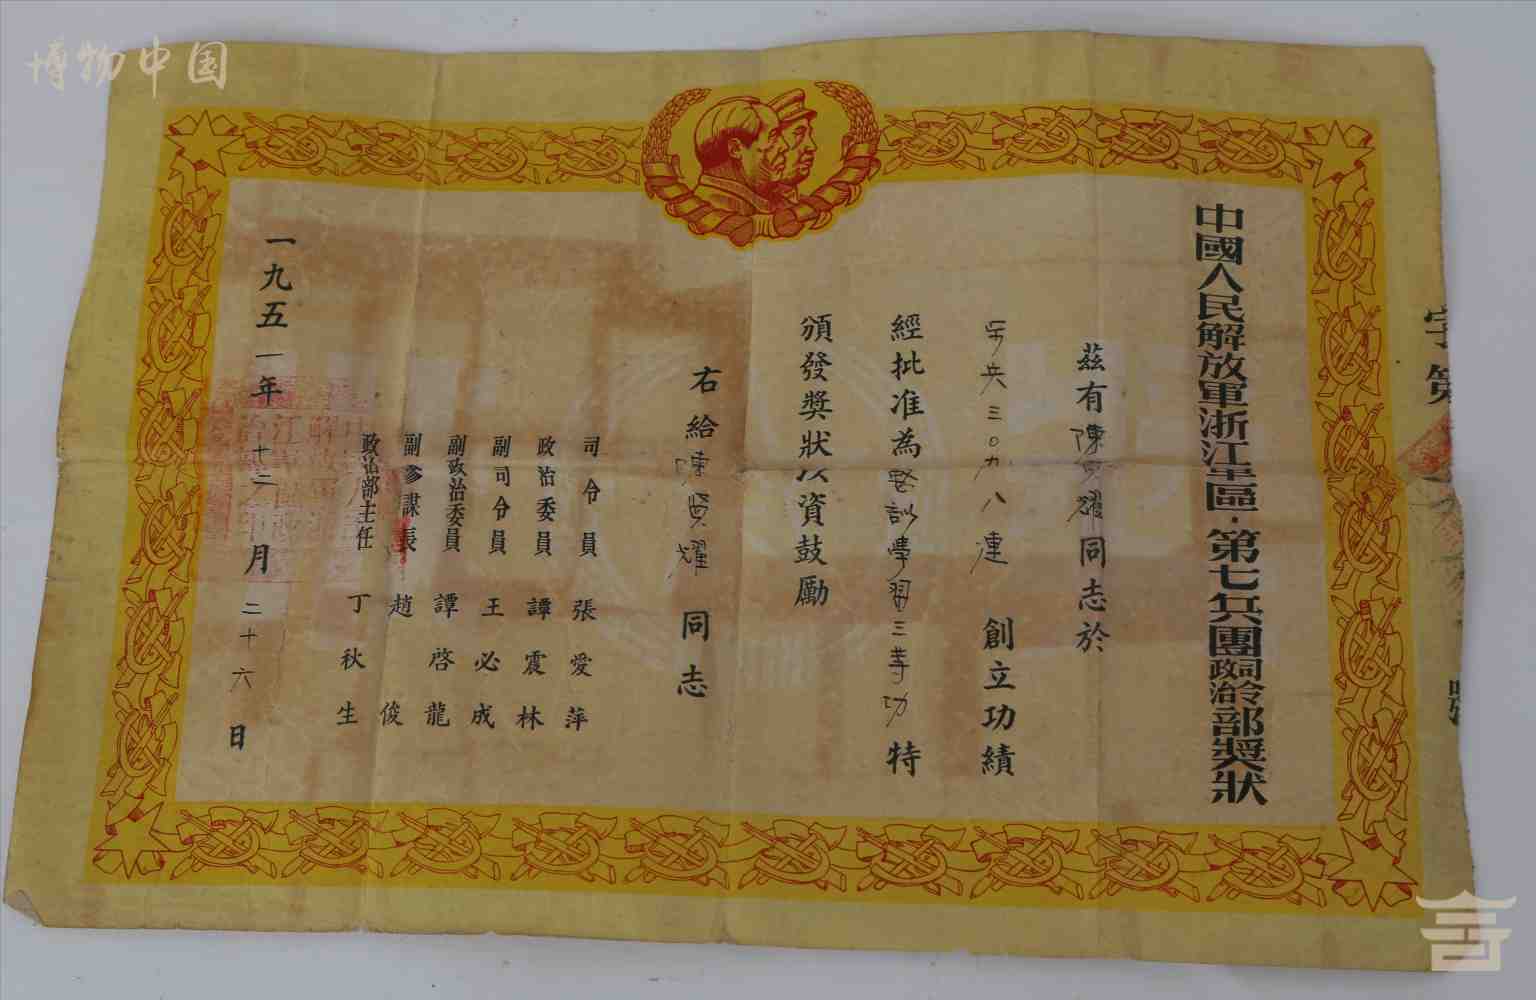 博物中国
字第
號
中國人民解放軍浙江軍區·第七兵團司令政治部獎狀
茲有陳賢耀同志於
三〇九八連 創立功績
經批准為整訓學習三等功特
頒發獎狀以資鼓勵
右給陳賢耀同志
司令員 張愛萍
政治委員 譚震林
副司令員 王必成
副政治委員 譚啓龍
副參謀長 趙俊
政治部主任 丁秋生
一九五一年十二月二十六日